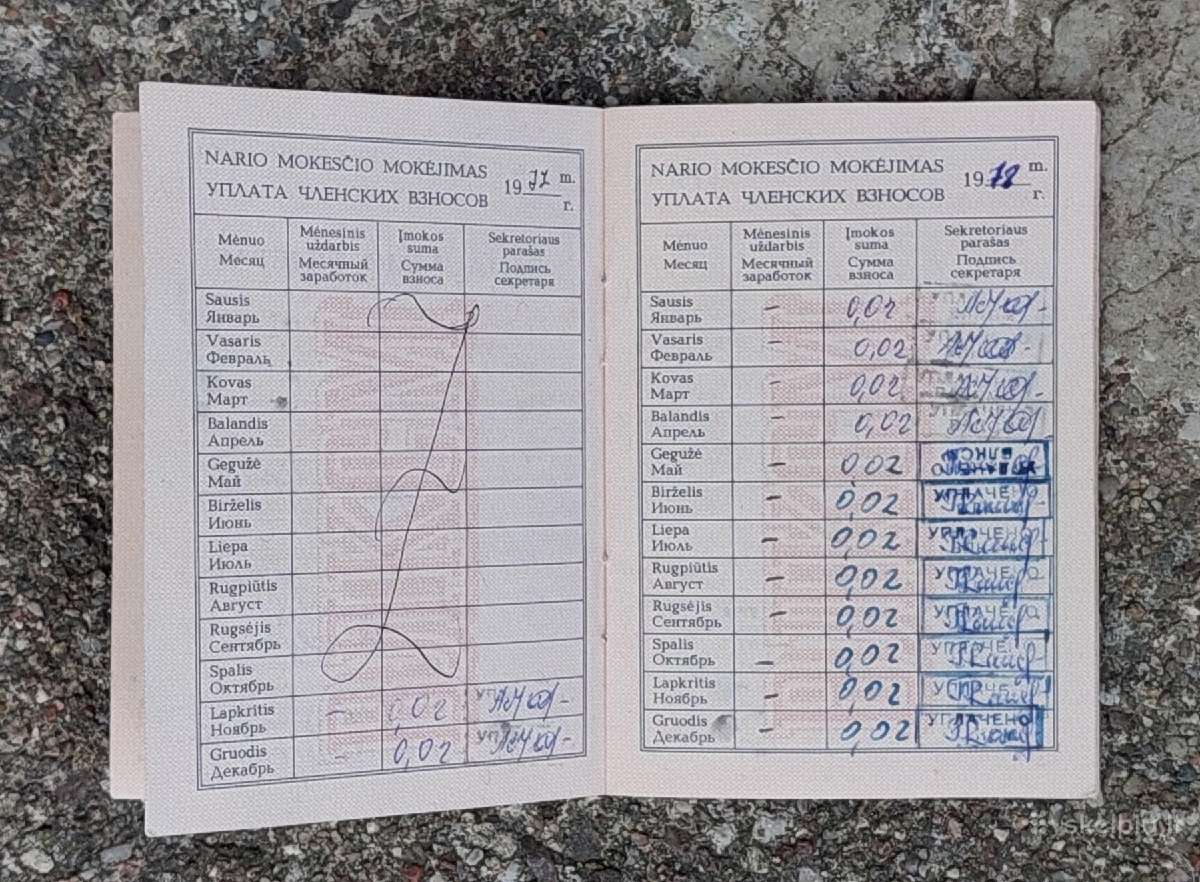 NARIO MOKESČIO MOKĖJIMAS
УПЛАТА ЧЛЕНСКИХ ВЗНОСОВ
1977 m.
г.
Mėnuo
Месяц
Mėnesinis
uždarbis
Месячный
заработок
Įmokos
suma
Сумма
взноса
Sekretoriaus
parašas
Подпись
секретаря
Sausis
Январь
Vasaris
Февраль
Kovas
Март
Balandis
Апрель
Gegužė
Май
Birželis
Июнь
Liepa
Июль
Rugpiūtis
Август
Rugsėjis
Сентябрь
Spalis
Октябрь
Lapkritis
Ноябрь
– 0,02
Gruodis
Декабрь
– 0,02
NARIO MOKESČIO MOKĖJIMAS
УПЛАТА ЧЛЕНСКИХ ВЗНОСОВ
1978 m.
г.
Mėnuo
Месяц
Mėnesinis
uždarbis
Месячный
заработок
Įmokos
suma
Сумма
взноса
Sekretoriaus
parašas
Подпись
секретаря
Sausis
Январь
– 0,02
Vasaris
Февраль
– 0,02
Kovas
Март
– 0,02
Balandis
Апрель
– 0,02
Gegužė
Май
– 0,02
Birželis
Июнь
– 0,02 УПЛАЧЕНО
Liepa
Июль
– 0,02 УПЛАЧЕНО
Rugpiūtis
Август
– 0,02 УПЛАЧЕНО
Rugsėjis
Сентябрь
– 0,02 УПЛАЧЕНО
Spalis
Октябрь
– 0,02 УПЛАЧЕНО
Lapkritis
Ноябрь
– 0,02 УПЛАЧЕНО
Gruodis
Декабрь
– 0,02 УПЛАЧЕНО
skelbiu.lt